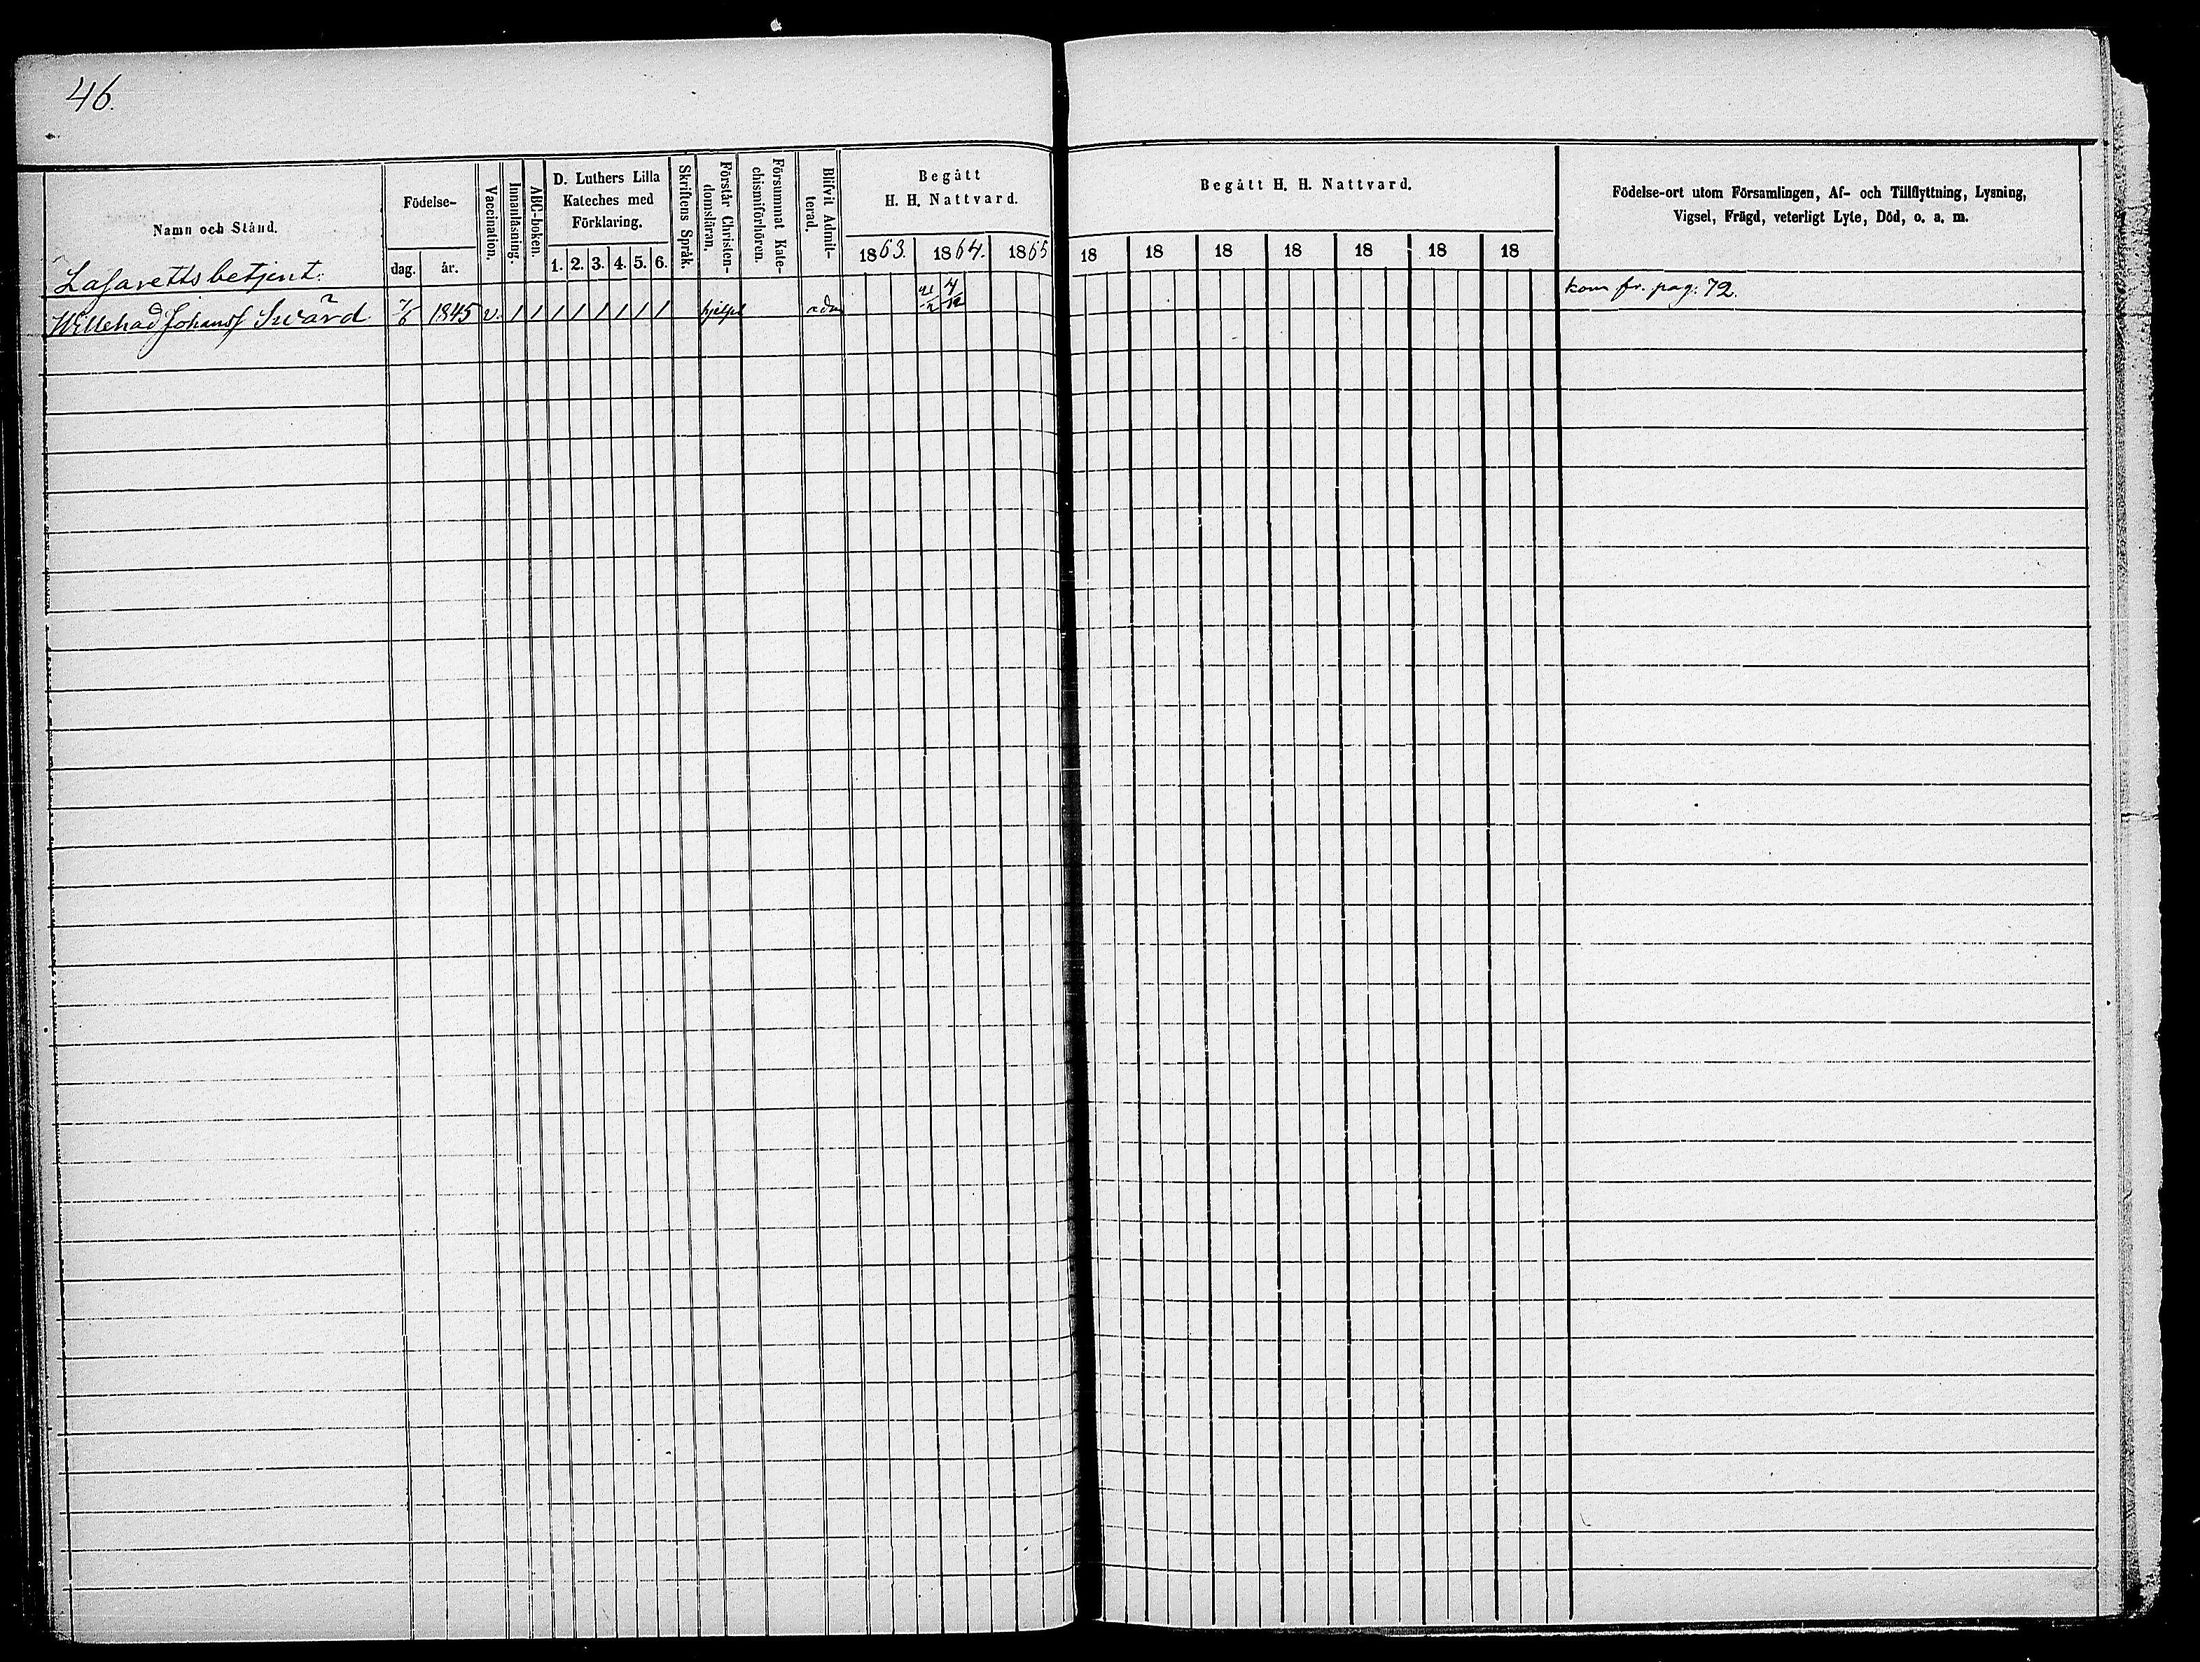 46.
Namn och Stånd.
Födelse-
dag.
år.
Vaccination.
Innanläsning.
ABC-boken.
D. Luthers Lilla
Kateches med
Förklaring.
1. 2. 3. 4. 5. 6.
Skriftens Språk.
Förstår Christen-
domsläran.
Försummat Kate-
chismiförhören.
Blifvit Admit-
terad.
Begått
H. H. Nattvard.
1863. 1864. 1865
Begått H. H. Nattvard.
18 18 18 18 18 18 18
Födelse-ort utom Församlingen, Af- och Tillflyttning, Lysning,
Vigsel, Frägd, veterligt Lyte, Död, o. a. m.
Lasarettsbetjent:
kom fr. pag. 72.
Willehad Johanss Swärd 7/6 1845 v. / / / / / / / / hjelpl